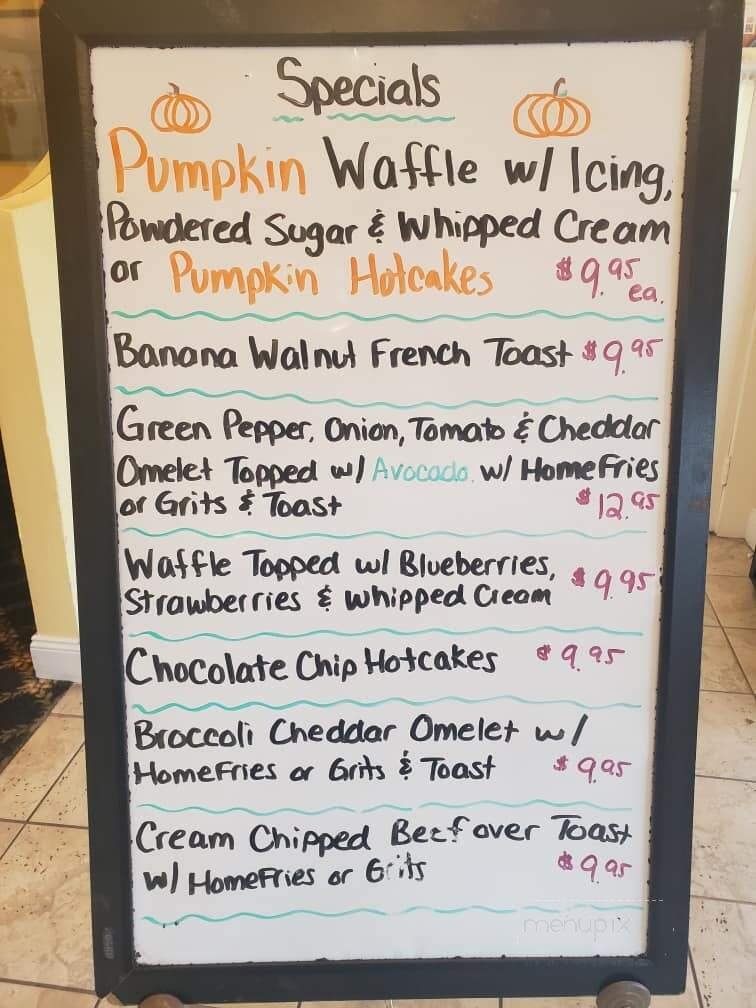 Specials
Pumpkin Waffle w/ Icing,
Powdered Sugar & Whipped Cream
or Pumpkin Hotcakes $9.95 ea.
Banana Walnut French Toast $9.95
Green Pepper, Onion, Tomato & Cheddar
Omelet Topped w/ Avocado w/ HomeFries
or Grits & Toast $12.95
Waffle Topped w/ Blueberries,
Strawberries & Whipped Cream $9.95
Chocolate Chip Hotcakes $9.95
Broccoli Cheddar Omelet w/
HomeFries or Grits & Toast $9.95
Cream Chipped Beef over Toast
w/ HomeFries or Grits $9.95
menupix